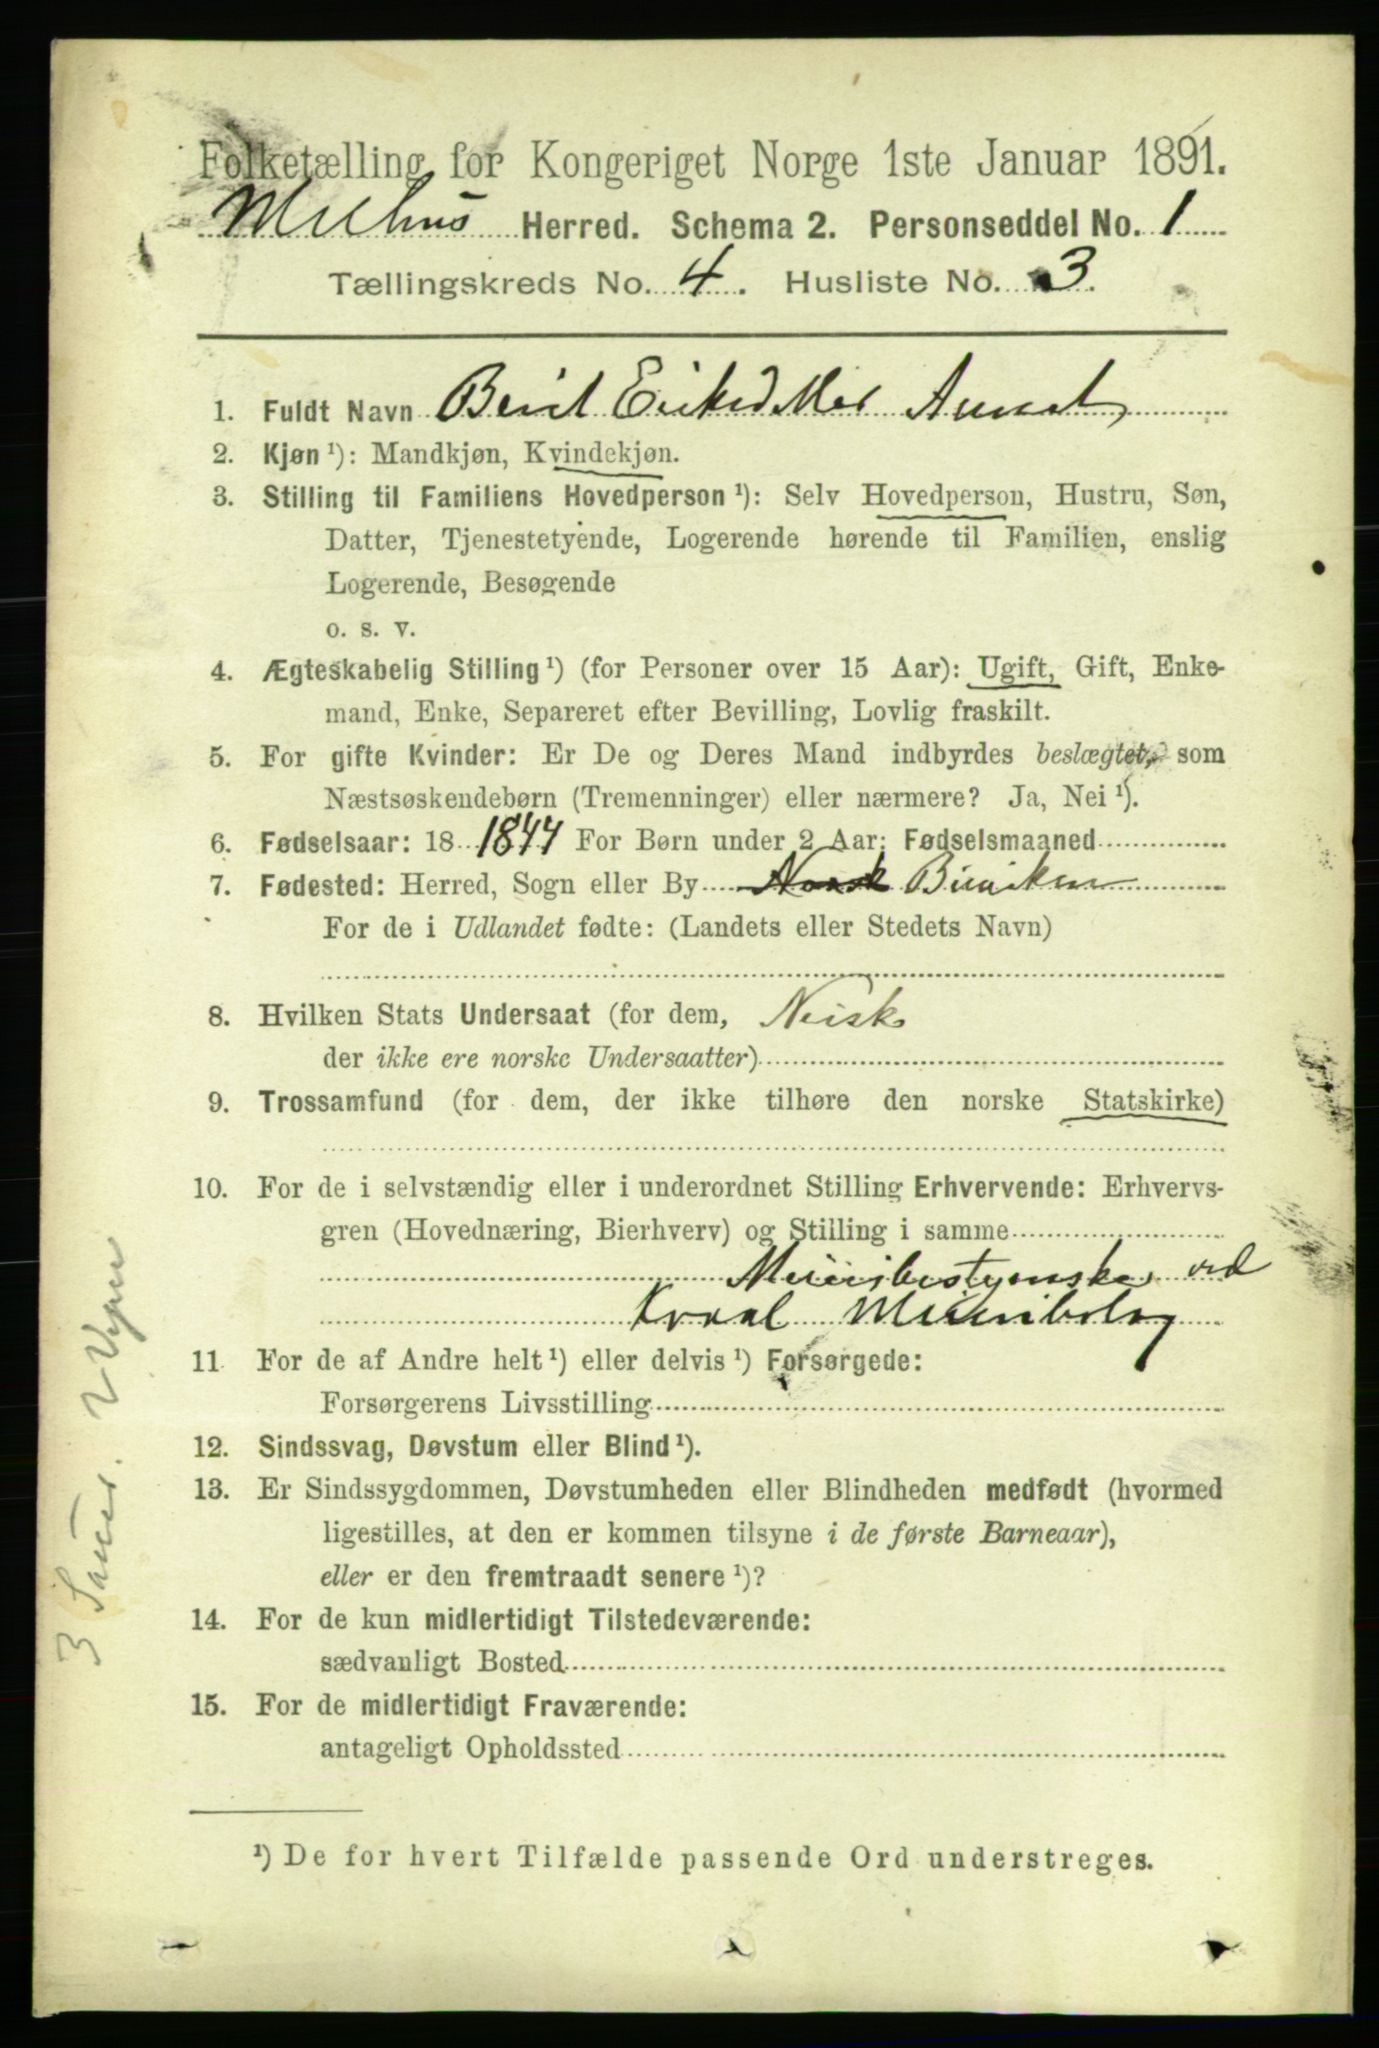 Folketælling for Kongeriget Norge 1ste Januar 1891.
Melhus Herred. Schema 2. Personseddel No. 1
Tællingskreds No. 4. Husliste No. 3.
1. Fuldt Navn Berit
2. Kjøn ¹): Mandkjøn, Kvindekjøn.
3. Stilling til Familiens Hovedperson ¹): Selv Hovedperson, Hustru, Søn,
Datter, Tjenestetyende, Logerende hørende til Familien, enslig
Logerende, Besøgende
o. s. v.
4. Ægteskabelig Stilling ¹) (for Personer over 15 Aar): Ugift, Gift, Enke-
mand, Enke, Separeret efter Bevilling, Lovlig fraskilt.
5. For gifte Kvinder: Er De og Deres Mand indbyrdes beslægtet, som
Næstsøskendebørn (Tremenninger) eller nærmere? Ja, Nei ¹).
6. Fødselsaar: 18 1844 For Børn under 2 Aar: Fødselsmaaned
7. Fødested: Herred, Sogn eller By Norsk
For de i Udlandet fødte: (Landets eller Stedets Navn)
8. Hvilken Stats Undersaat (for dem, Norsk
der ikke ere norske Undersaatter)
9. Trossamfund (for dem, der ikke tilhøre den norske Statskirke)
10. For de i selvstændig eller i underordnet Stilling Erhvervende: Erhvervs-
gren (Hovednæring, Bierhverv) og Stilling i samme
Meieribestyrerske ved
Kvaal Meieribolag
11 For de af Andre helt ¹) eller delvis ¹) Forsørgede:
Forsørgerens Livsstilling
12. Sindssvag, Døvstum eller Blind ¹).
13. Er Sindssygdommen, Døvstumheden eller Blindheden medfødt (hvormed
ligestilles, at den er kommen tilsyne i de første Barneaar),
eller er den fremtraadt senere ¹)?
14. For de kun midlertidigt Tilstedeværende:
sædvanligt Bosted
15. For de midlertidigt Fraværende:
antageligt Opholdssted
¹) De for hvert Tilfælde passende Ord understreges.
3